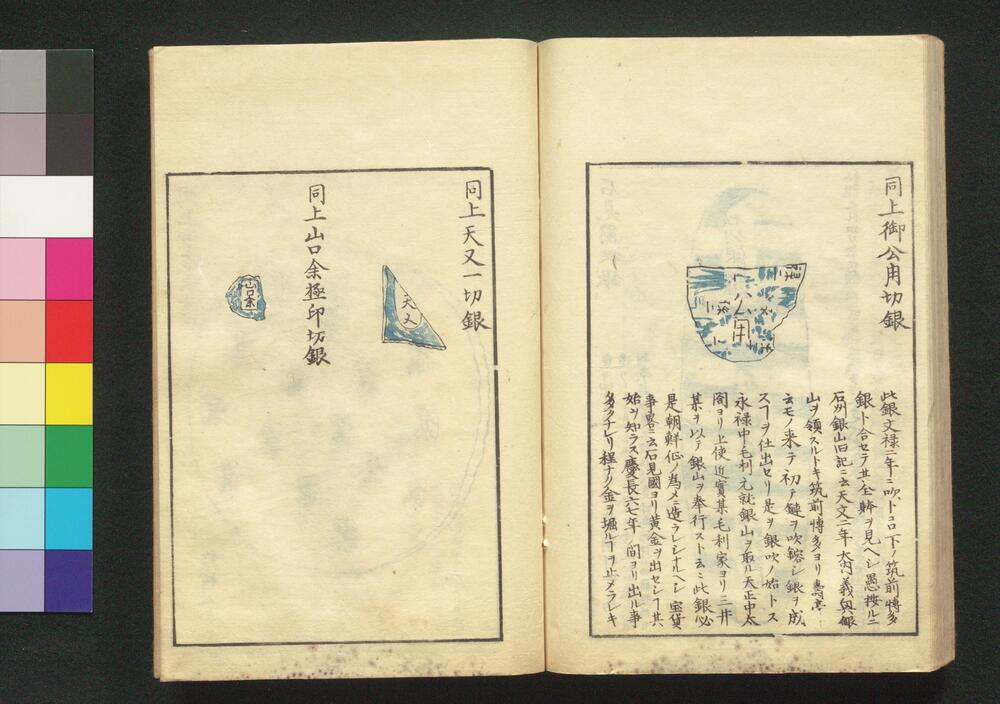 同上御公用切銀
公用
此銀文禄二年ニ吹トコロ下ノ筑前博多
銀ト合セテ其全躰ヲ見ヘシ愚按ルニ
石州銀山旧記ニ云天文二年大内義興銀
山ヲ領スルトキ筑前博多ヨリ壽亭
云モノ来テ初テ鏈ヲ吹鎔シ銀ヲ成
スヿヲ仕出セリ是ヲ銀吹ノ始トス
永禄中毛利元就銀山ヲ取ル天正中太
閤ヨリ上使近實某毛利家ヨリ三井
某ヲ以テ銀山ヲ奉行スト云云此銀必
是朝鮮征ノ為メニ造ラレシナルヘシ宝貨
事畧ニ云石見國ヨリ黄金ヲ出セシヿ其
始ヲ知ラス慶長六七年ノ間ヨリ出ル事
多クナレリ程ナク金ヲ堀ルヿヲ止メラレキ
同上天又一切銀
天又
同上山口余極印切銀
山口余